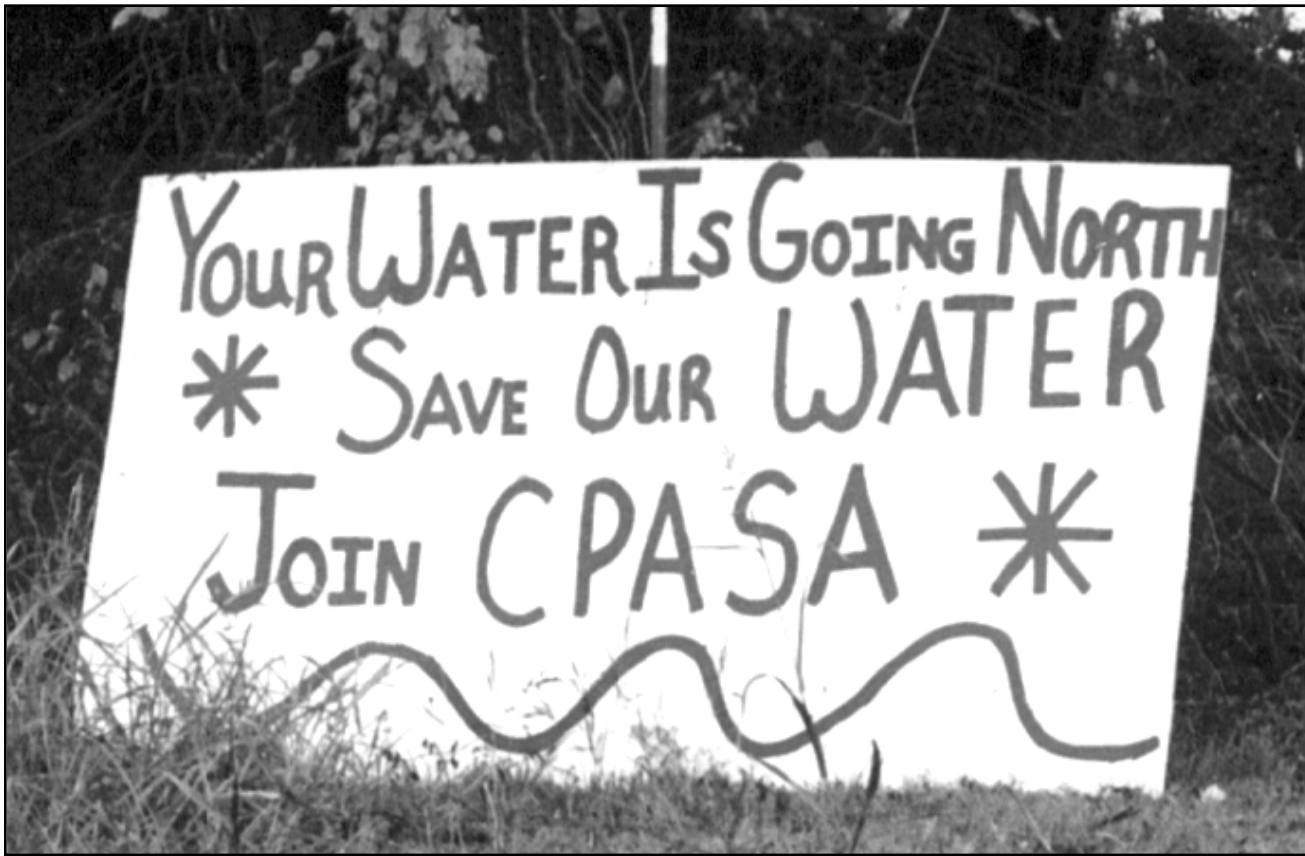 YOUR WATER IS GOING NORTH
* SAVE OUR WATER
JOIN CPASA *